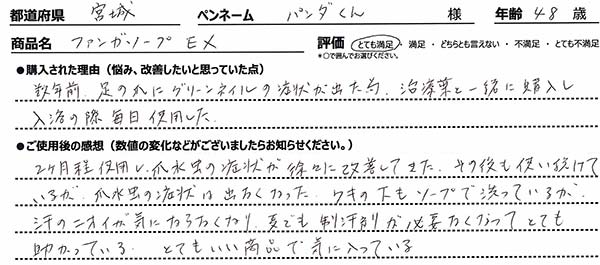 都道府県 宮城 ペンネーム パンダくん 様 年齢 48 歳
商品名 ファンガソープEX 評価 とても満足 ・ 満足 ・ どちらとも言えない ・ 不満足 ・ とても不満足
*○で囲んでお選びください。
●購入された理由（悩み、改善したいと思っていた点）
数年前、足の爪にグリーンネイルの症状が出た為、治療薬と一緒に購入し
入浴の際毎日使用した。
●ご使用後の感想（数値の変化などがございましたらお知らせください。）
2ヶ月程使用し、爪水虫の症状が徐々に改善してきた。その後も使い続けて
いるが、爪水虫の症状は出なくなった。ワキの下もソープで洗っているが、
汗のニオイが気にならなくなり、夏でも制汗剤が必要なくなってとても
助かっている。とてもいい商品で気に入っている